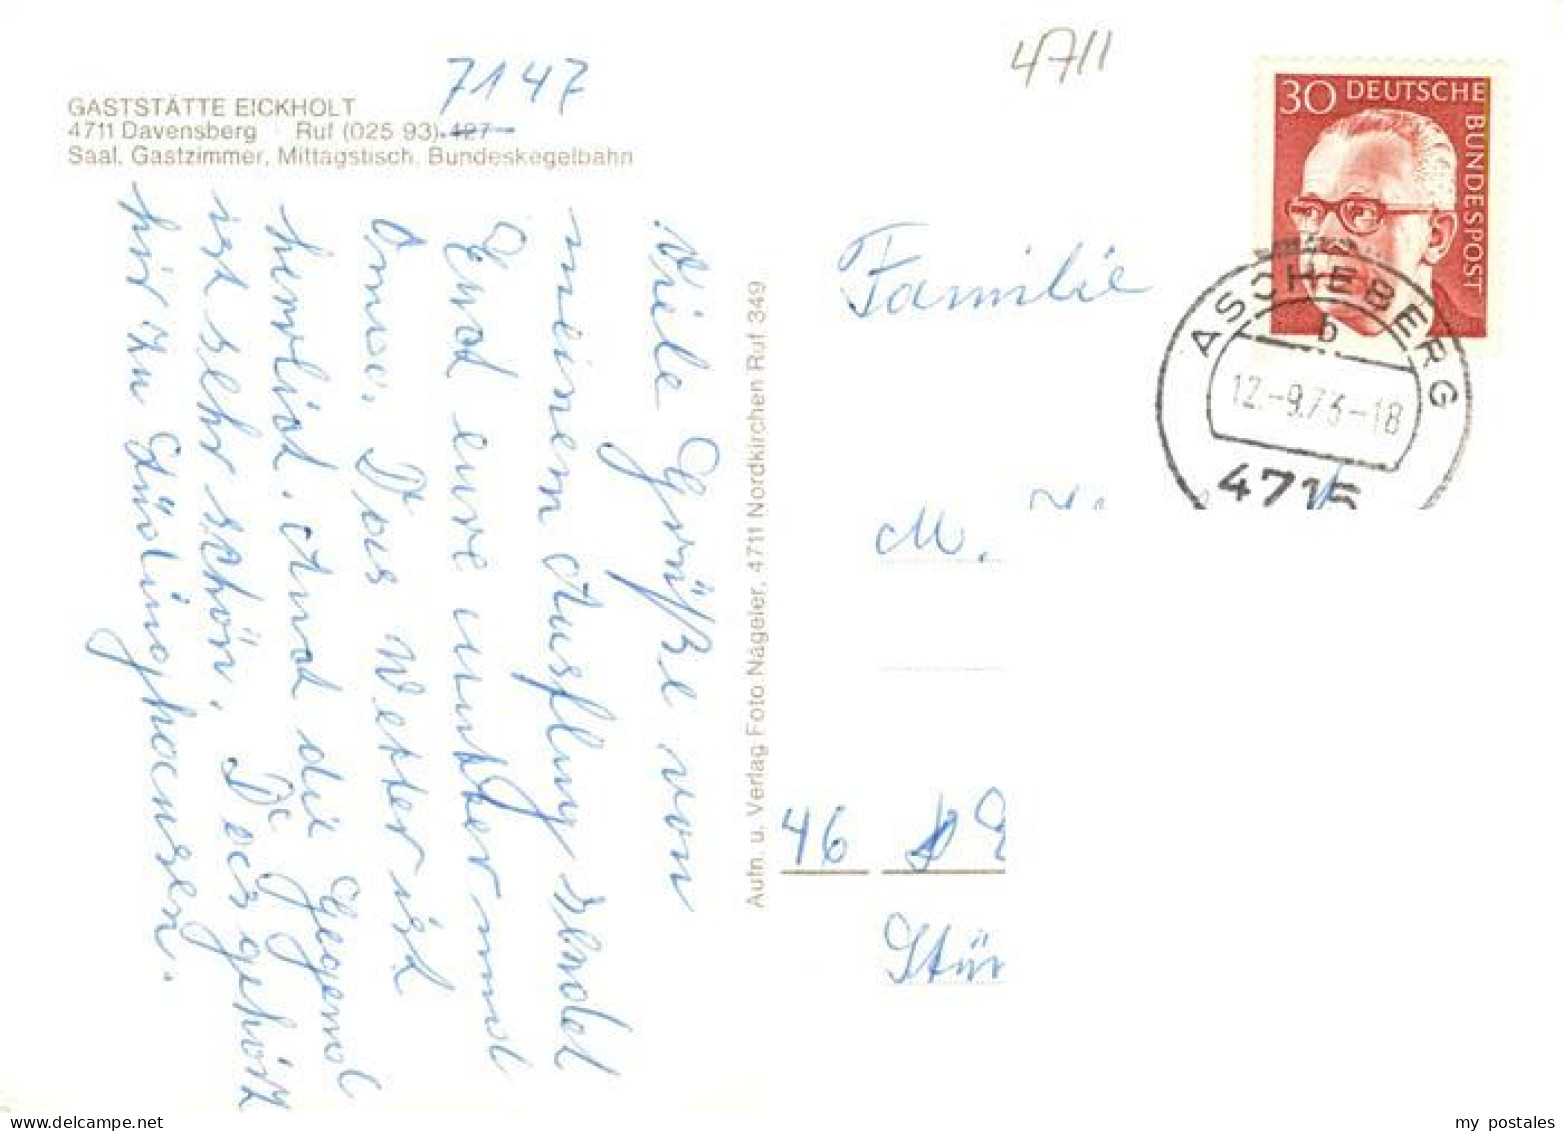 7147
GASTSTÄTTE EICKHOLT
4711 Davensberg Ruf (025 93) 427
Saal, Gastzimmer, Mittagstisch, Bundeskegelbahn
Viele Grüße von
meinem Ausflug sendet
Euch eure Mutter und
Oma. Das Wetter ist
herrlich. Auch die Gegend
ist sehr schön. Das gehört
hir zu Lüdinghausen.
Aufn. u. Verlag Foto Nägeler, 4711 Nordkirchen Ruf 349
4711
30 DEUTSCHE BUNDESPOST
ASCHEBERG
b
12.-9.73-18
4715
Familie
M.
46
Stür